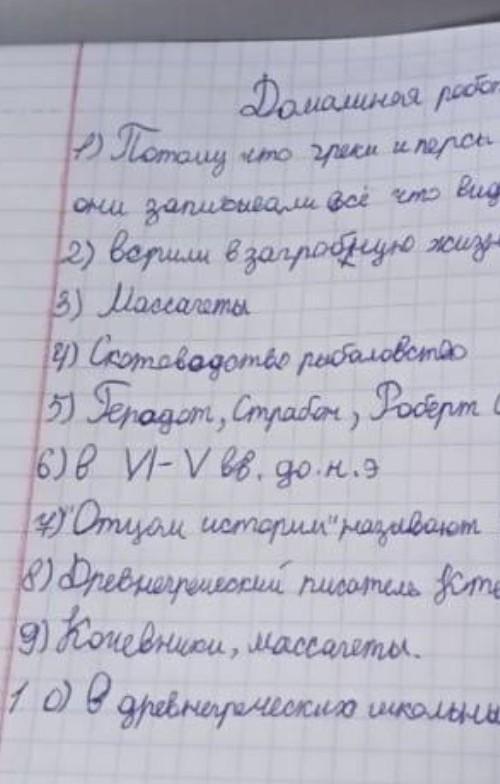 Домашняя работ
1) Потому что греки и персы
они записывали всё что вид
2) верили в загробную жизн
3) Массагеты
4) Скотовадство рыбаловство
5) Герадот, Страбон, Роберт
6) в VI-V вв. до.н.э
7) "Отцом истории" называют
8) Древнегреческий писатель Кте
9) Кочевники, массагеты.
10) В древнегреческих школьны